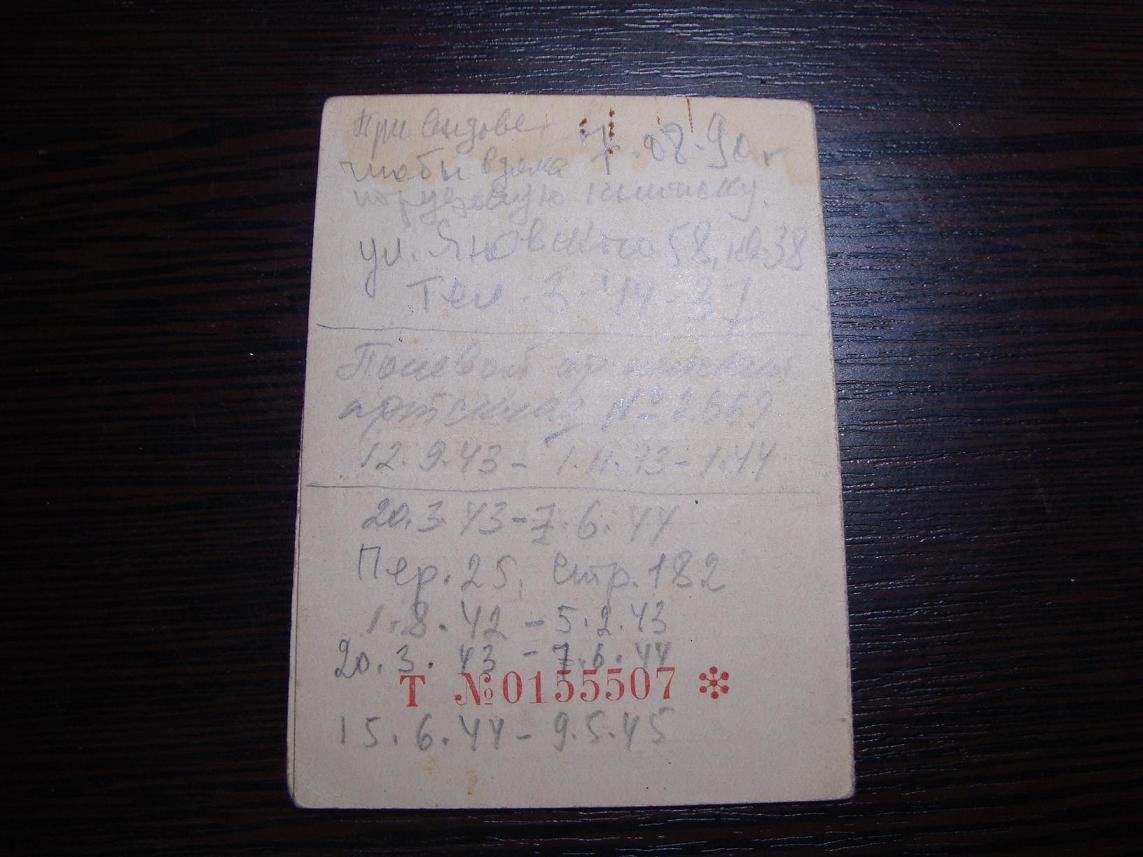 При вызове 7.08.90 г
чтобы взяла
трудовую книжку.
ул. Яновского 58, кв. 38
Тел. 3-44-27
Полевой армейский
артсклад № 2669
12.9.43 – 1.11.43 – 1.44
20.3.43 – 7.6.44
Пер. 25, стр. 182
1.8.42 – 5.2.43
20.3.43 – 7.6.44
Т №0155507 ✻
15.6.44 – 9.5.45